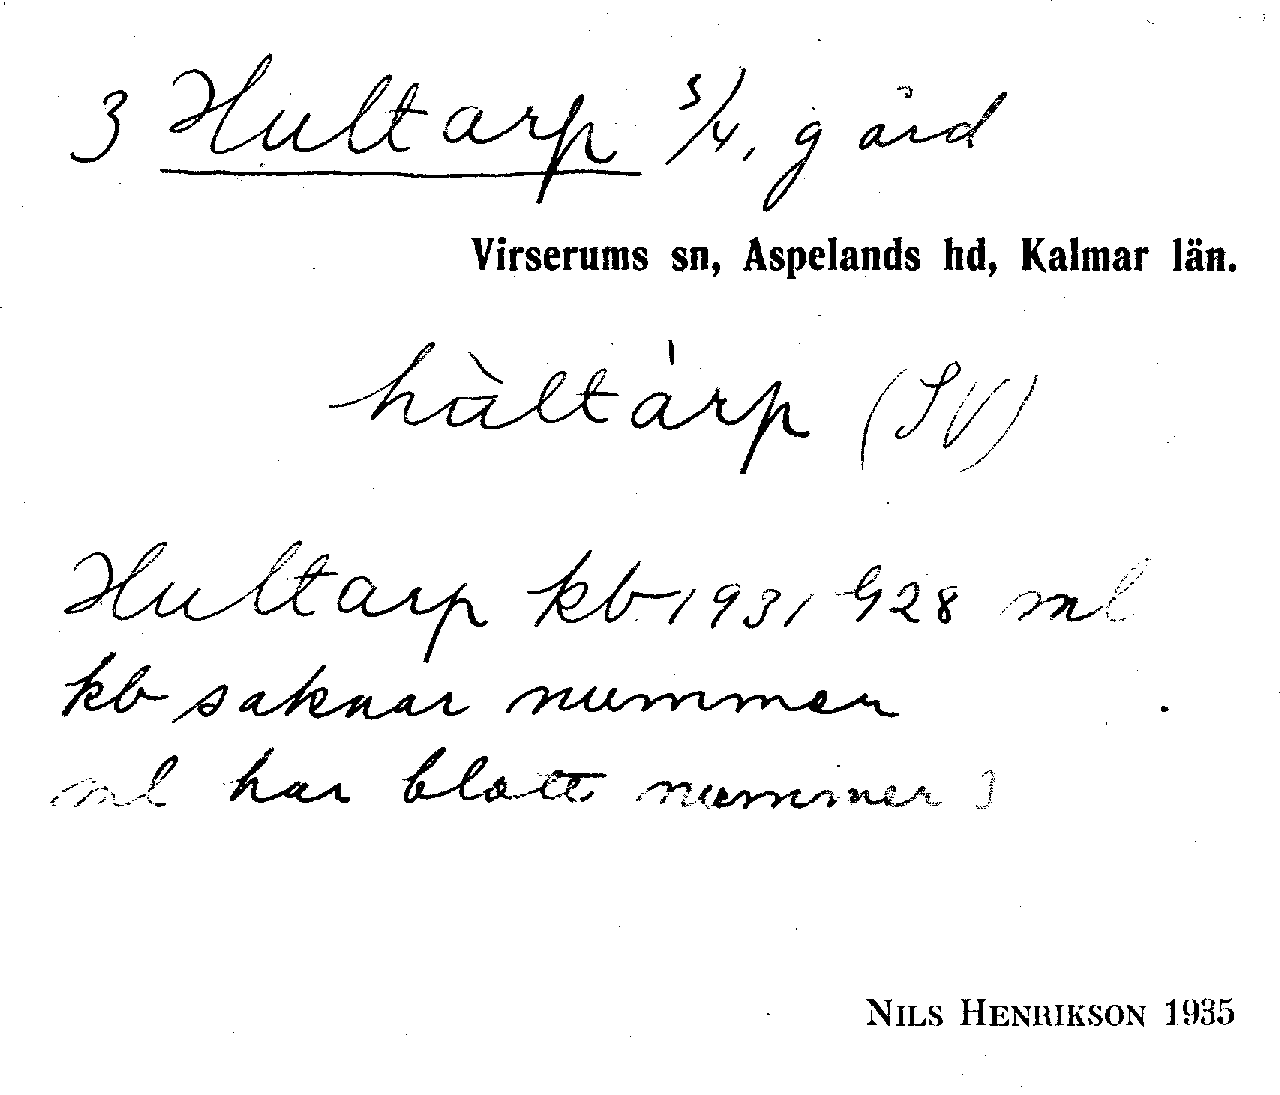 3 Hultarp 3/4, gård
Virserums sn, Aspelands hd, Kalmar län.
hùltárp (SV)
Hultarp kb 1931 G 28 ml
kb saknar nummer
ml har blott nummer 3
NILS HENRIKSON 1935